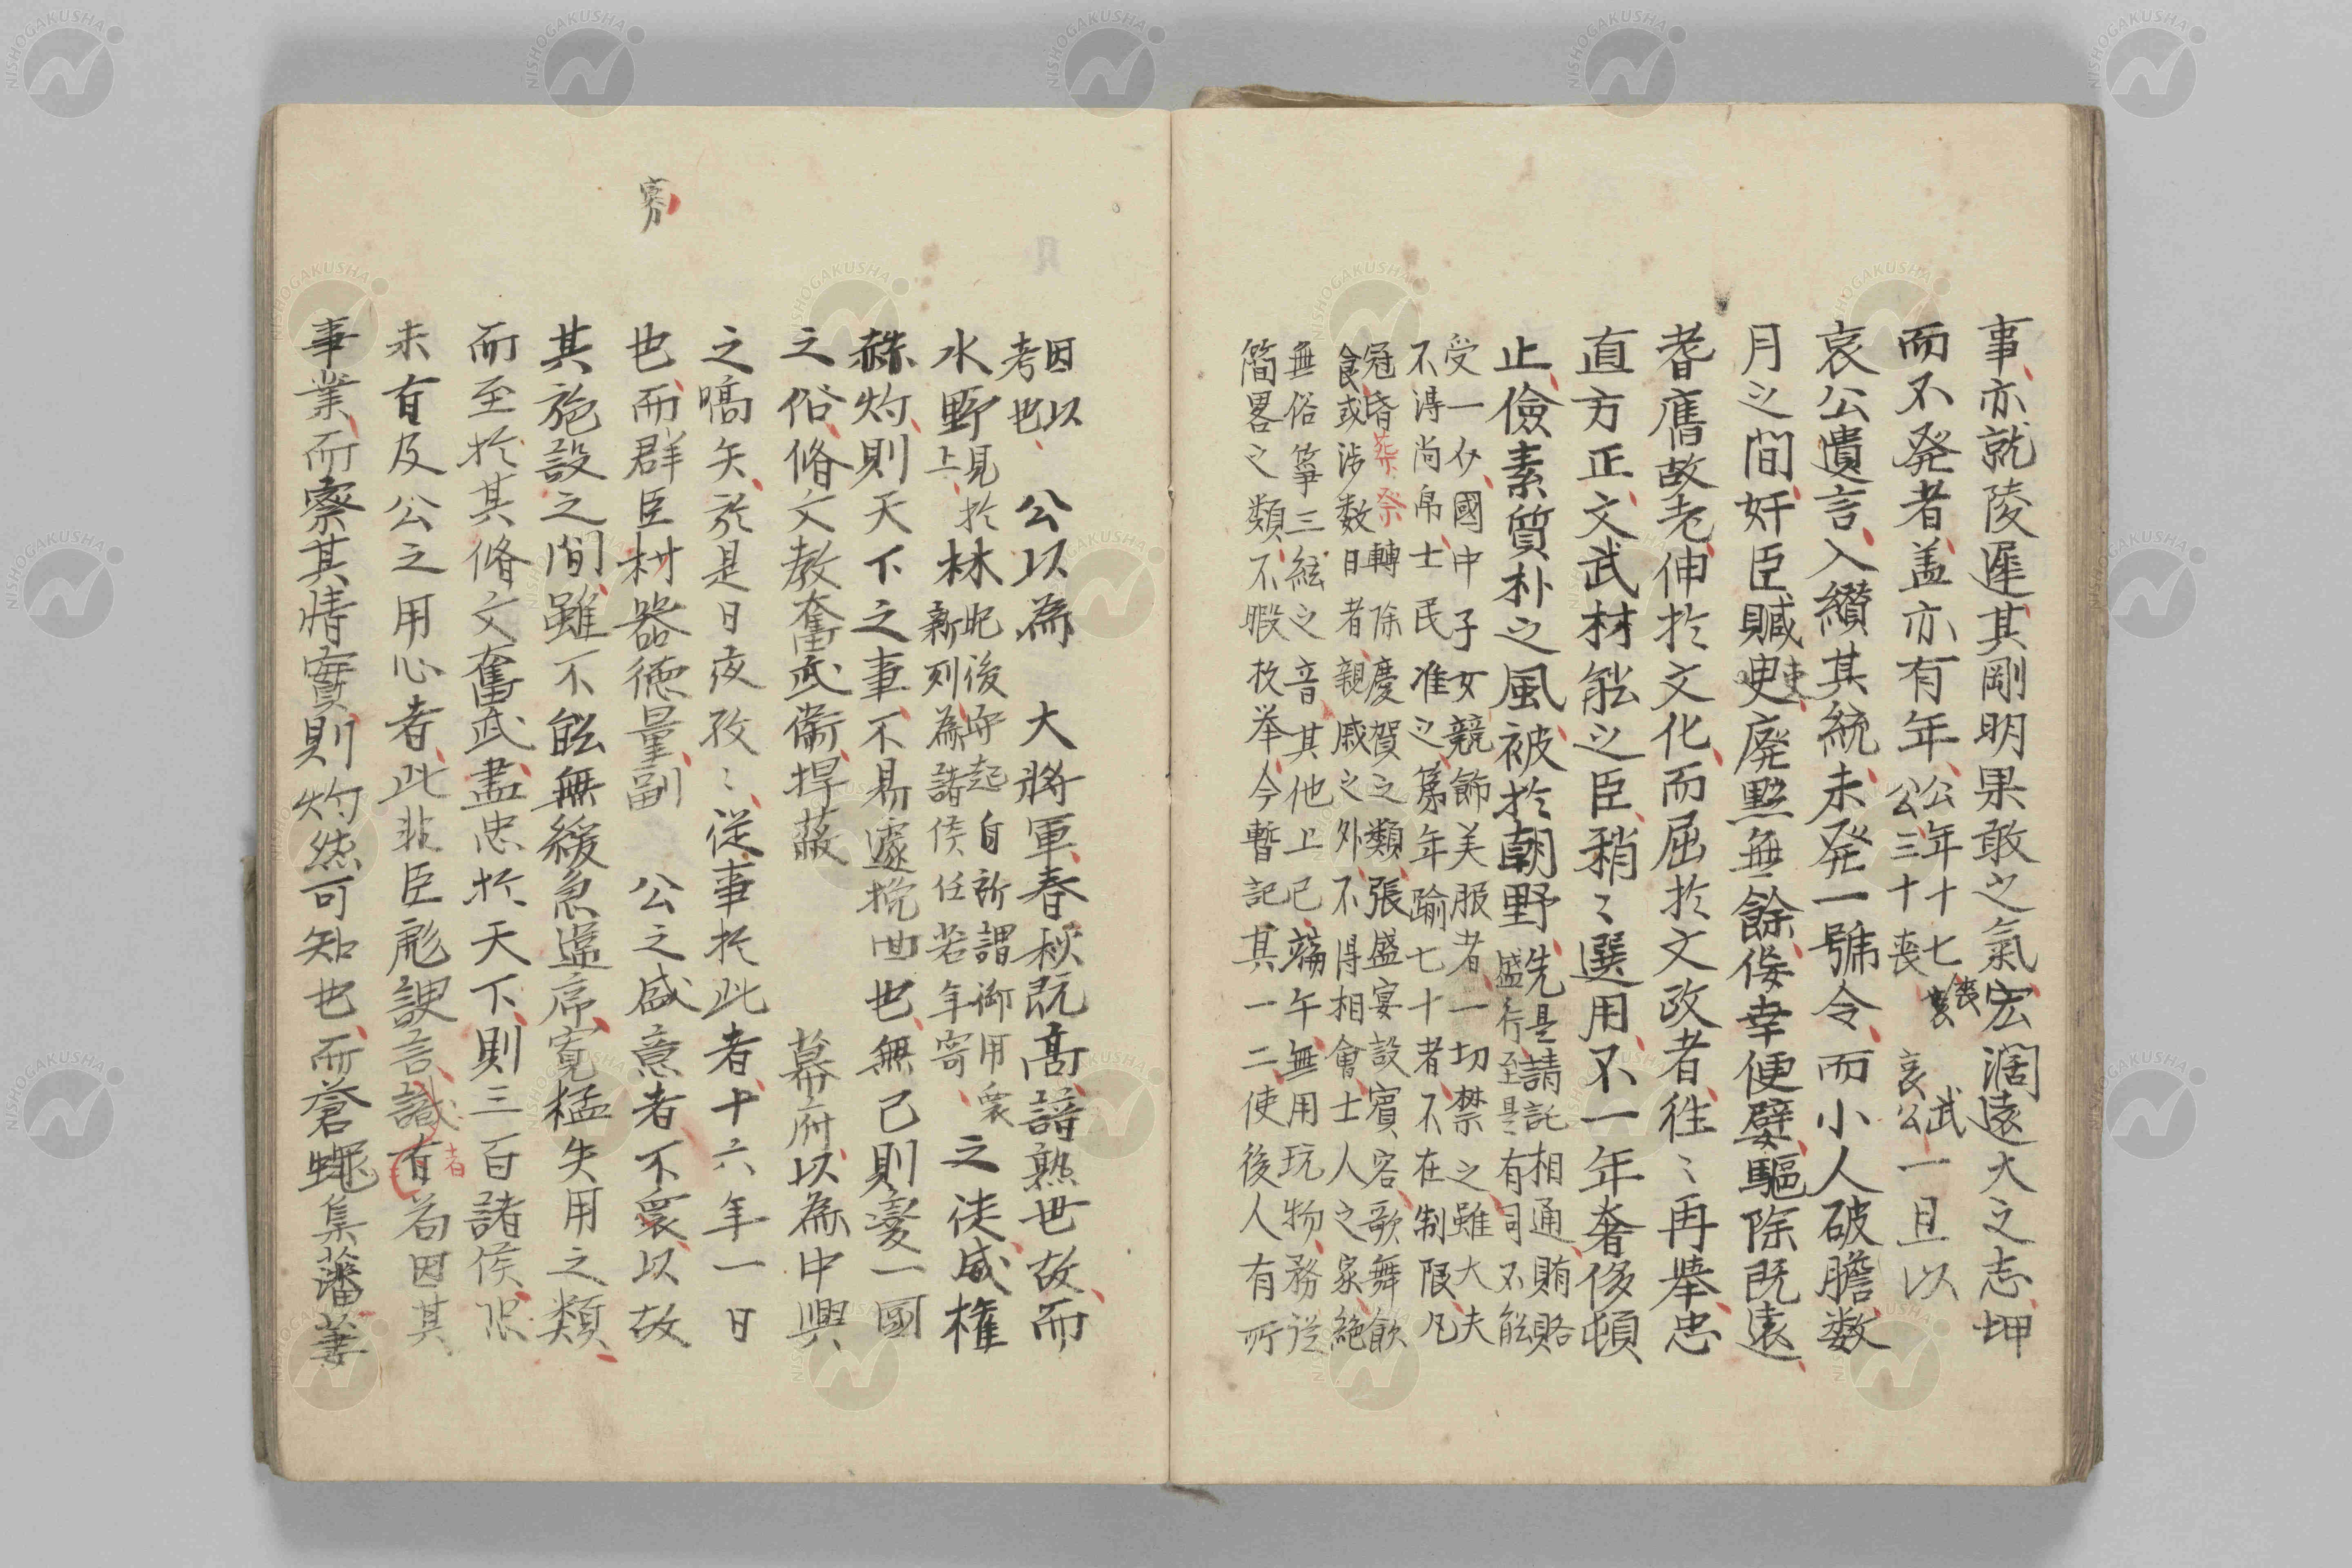 事亦就陵遲其剛明果敢之氣宏濶遠大之志堙
而不発者盖亦有年公年十七喪
公三十喪哀 武
哀公一旦以
哀公遺言入纉其統未発一號令而小人破膽数
月之間奸臣贓吏廃黙無餘倿幸便嬖驅除既遠
耆舊故老伸於文化而屈於文政者往〻再挙忠
直方正文武材能之臣稍〻選用不一年奢侈頓
止儉素質朴之風被於朝野先是請託相通賄賂
盛行至是有司不能
受一介國中子女競飾美服者一切禁之雖大夫
不得尚帛士民准之第年踰七十者不在制限凡
冠昏葬祭轉除慶賀之類張盛宴設賓客歌舞飲
食或渉数日者親戚之外不得相會士人之家絶
無俗箏三絃之音其他上巳端午無用玩物務従
簡畧之類不暇枚挙今暫記其一二使後人有所
因以
考也 公以為 大將軍春秋既髙諳熟世故而
水野見於
上林肥後守起自所謂御用衆
新列為諸侯任若年寄之徒威權
赫灼則天下之事不易遽挽回也無已則変一國
之俗脩文教奮武衛捍蔽 幕府以為中興
之嚆矢於是日夜孜〻従事於此者十六年一日
也而群臣材器徳量副 公之盛意者不衆以故
其施設之間雖不能無緩急逓序寛猛失用之類
而至於其脩文奮武盡忠於天下則三百諸侯恐
未有及公之用心者此非臣彪諛言識者有若因其
事業而察其情實則灼然可知也而蒼蠅集藩萋